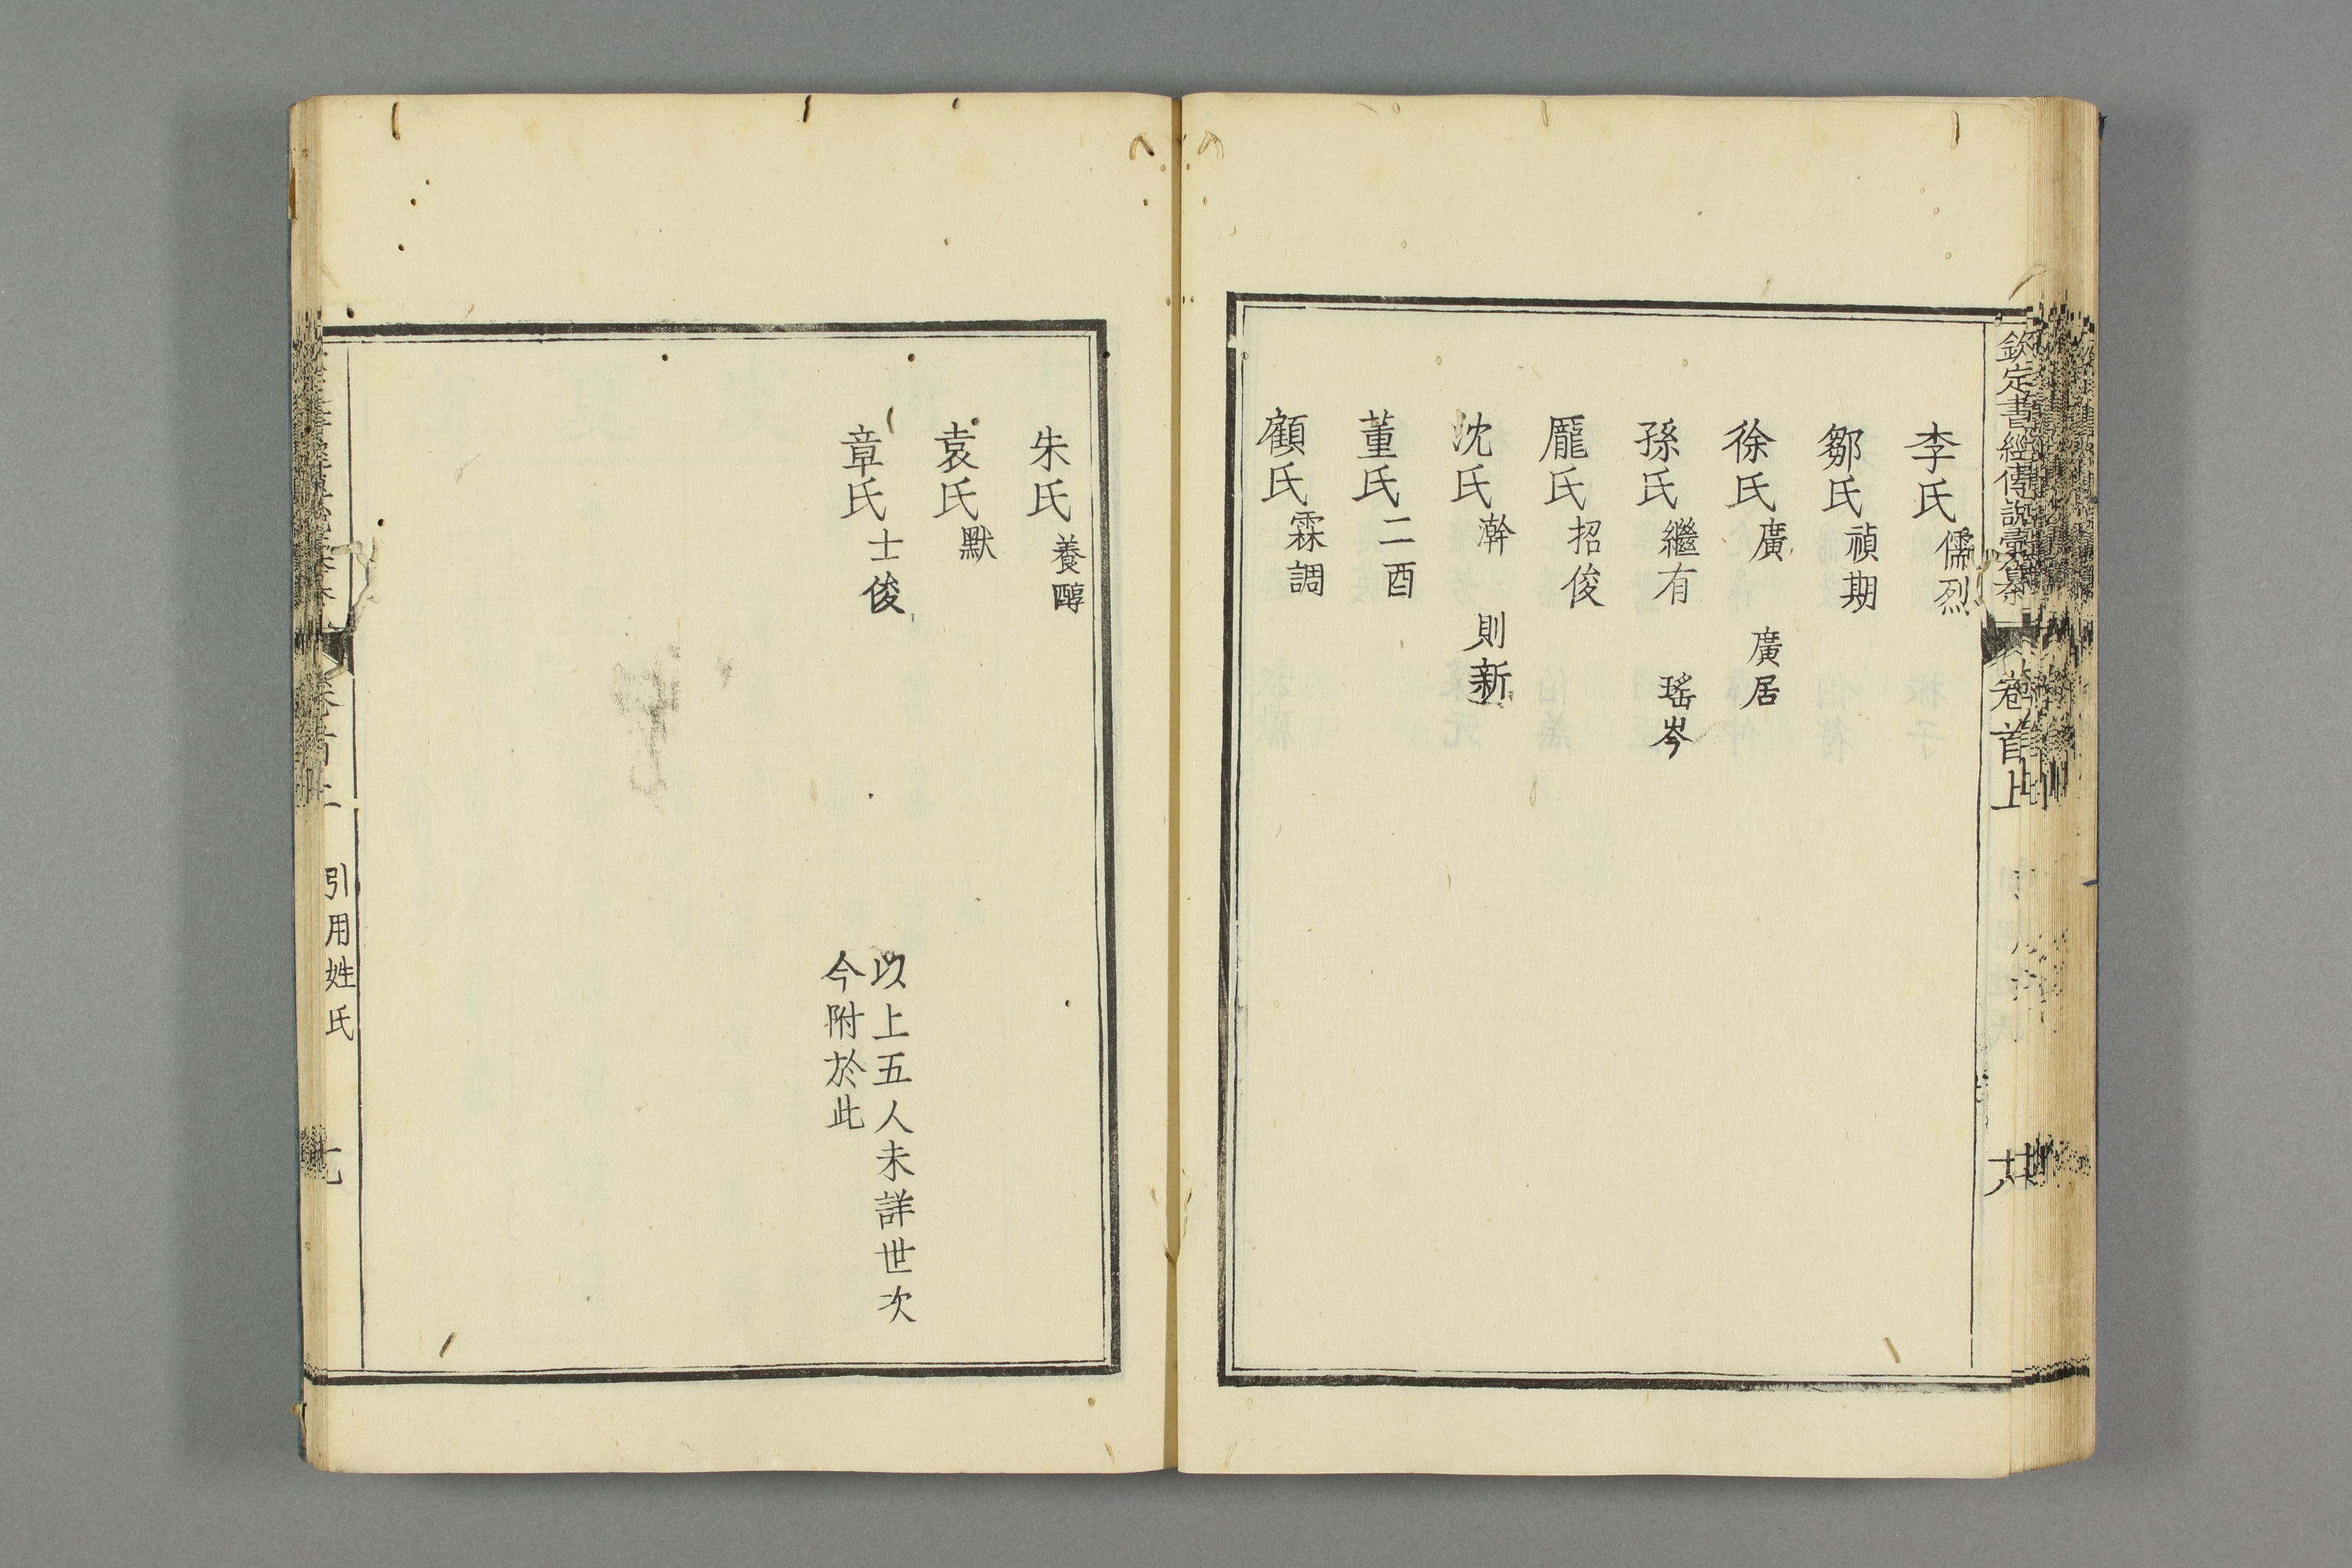 欽定書經傳說彙纂 卷首上
李氏儒烈
鄒氏禎期
徐氏廣 廣居
孫氏繼有 瑤岑
龐氏招俊
沈氏澣 則新
董氏二酉
顧氏霖調
朱氏養醇
袁氏默
章氏士俊
以上五人未詳世次
今附於此
卷首上 引用姓氏